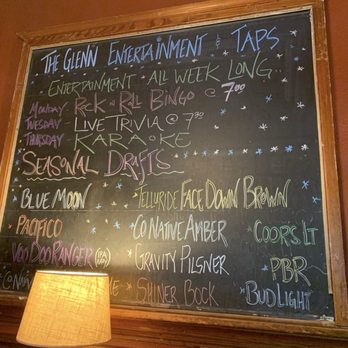 THE GLENN ENTERTAINMENT & TAPS
ENTERTAINMENT - ALL WEEK LONG
MONDAY ROCK N ROLL BINGO @ 7:00
TUESDAY LIVE TRIVIA @ 7:30
THURSDAY KARAOKE
SEASONAL DRAFTS
BLUE MOON TELLURIDE FACE DOWN BROWN
PACIFICO CO NATIVE AMBER COORS LT
VOO DOO RANGER IPA GRAVITY PILSNER PBR
SHINER BOCK BUD LIGHT